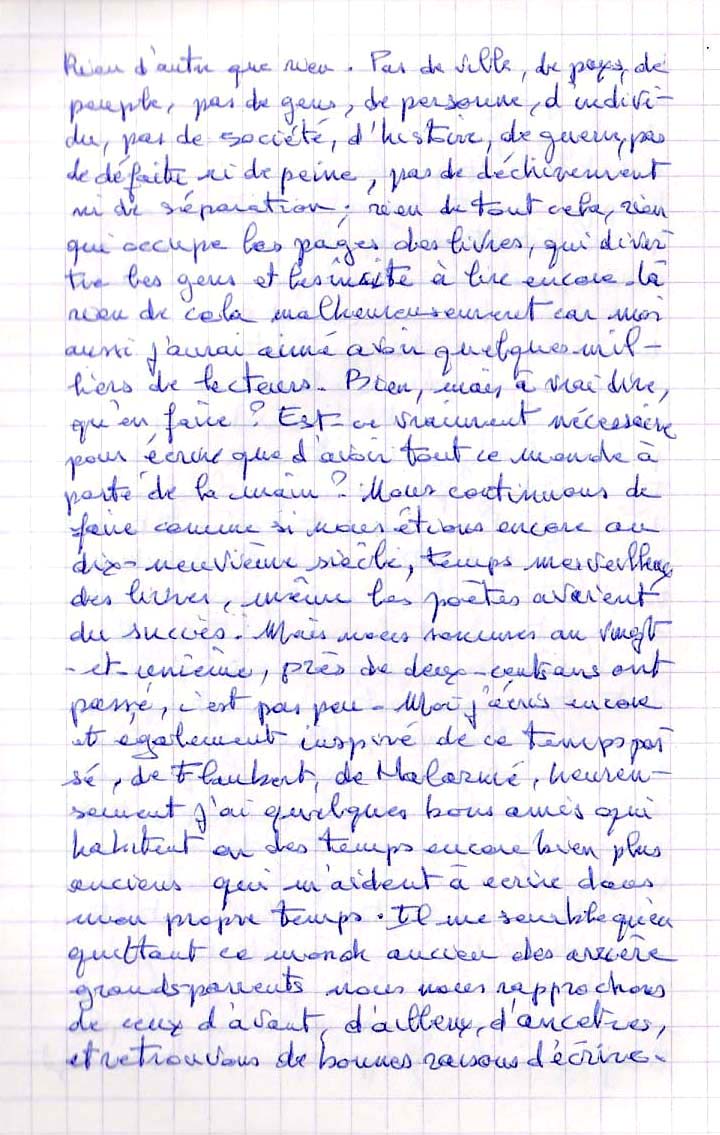 Rien d'autre que rien. Pas de ville, de pays, de
peuple, pas de gens, de personne, d'indivi-
du, pas de société, d'histoire, de guerre, pas
de défaite ni de peine, pas de déchirement
ni de séparation, rien de tout cela, rien
qui occupe les pages des livres, qui diver-
tie les gens et les incite à lire encore. Là
rien de cela malheureusement car moi
aussi j'aurai aimé avoir quelques mil-
liers de lecteurs. Bien, mais à vrai dire,
qu'en faire ? Est-ce vraiment nécessaire
pour écrire que d'avoir tout ce monde à
porté de la main ? Nous continuons de
faire comme si nous étions encore au
dix-neuvième siècle, temps merveilleux
des livres, même les poètes avaient
du succès. Mais nous sommes au vingt
-et-unième, près de deux-cents ans ont
passé, c'est pas peu. Moi j'écris encore
et également inspiré de ce temps pas-
sé, de Flaubert, de Malarmé, heureu-
sement j'ai quelques bons amis qui
habitent en des temps encore bien plus
anciens qui m'aident à ecrire dans
mon propre temps. Il me semble qu'en
quittant ce monde ancien des arrière
grands-parents nous nous rapprochons
de ceux d'avant, d'ailleurs, d'ancetres,
et retrouvons de bonnes raisons d'écrire.